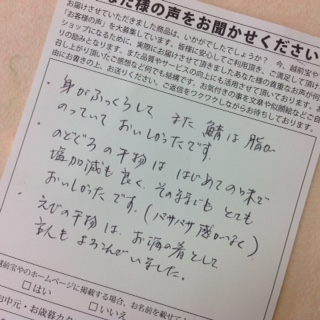 な様の声をお聞かせください
お届けさせていただきました商品は、いかがでしたでしょうか？ 今、越前宝や
「お客様の声」を大募集しています。皆様に安心してご利用頂き、ご満足して頂け
ショップになるために、実際にお届けさせて頂きましたあなた様の貴重なお声が何
りの励みとなります。また品質やサービスの向上にも活用させて頂いております。あ
召し上がり頂いたご感想など何でも結構です。お気付きの事を文章や似顔絵などご自
由にお書きの上、お送りください。ご返信をワクワクしながらお待ちしております。
・身がふっくらして また 鯖は 脂が
のっていて おいしかったです。
・のどぐろの干物は はじめての味で
塩加減も良く、そのままでも とても
おいしかったです。（パサパサ感がなく）
・えびの干物は、お酒の肴として
主人も よろこんでいました。
越前宝やのホームページに掲載する場合、お名前を載せて
□はい □いいえ
お中元・お歳暮カタ